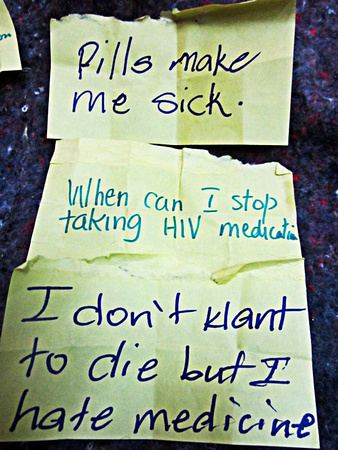 Pills make
me sick.
When can I stop
taking HIV medicatio
I don't klant
to die but I
hate medicine